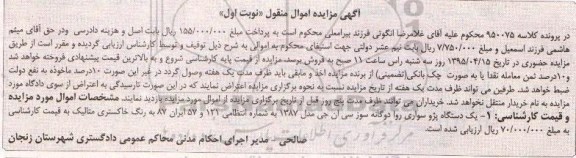 آگهی مزایده اموال منقول «نوبت اول»
در پرونده کلاسه ۹۵۰۰۷۵ محکوم علیه آقای غلامرضا انگوتی فرزند بیرامعلی محکوم است به پرداخت مبلغ ۱۵۵/۰۰۰/۰۰۰ ریال بابت اصل و هزینه دادرسی ودر حق آقای میثم
هاشمی فرزند اسمعیل و مبلغ ۷/۷۵۰/۰۰۰ ریال بابت نیم عشر دولتی جهت استیفای محکوم به اموالی به شرح ذیل توقیف و توسط کارشناس ارزیابی گردیده و مقرر است از طریق
مزایده حضوری در تاریخ ۱۳۹۵/۰۴/۱۵ روز سه شنبه راس ساعت ۱۱ صبح به فروش برسد.مزایده از قیمت پایه کارشناسی شروع و به بالاترین قیمت پیشنهادی فروخته خواهد شد
و۱۰درصد ثمن معامله نقدا یا به صورت چک بانکی(تضمینی) از برنده مزایده اخذ و مابقی باید ظرف مدت یک هفته وصول گردد در غیر این صورت ۱۰درصد ماخوذه به نفع دولت
ضبط خواهدشد. طرفین می تواند ظرف مدت یک هفته از تاریخ مزایده نسبت به نحوه برگزاری مزایده اعتراض نمایند که در این صورت تارسیدگی به اعتراض از سوی دادگاه مورد
مزایده به نام خریدار منتقل نخواهد شد. خریداران می توانند ظرف مدت پنج روز قبل از تاریخ برگزاری مزایده از اموال مورد مزایده بازدید نمایند. مشخصات اموال مورد مزایده
و قیمت کارشناسی: ۱- یک دستگاه پژو سواری روآ دوگانه سوز سی ان جی مدل ۱۳۸۷ به شماره انتظامی ۱۲۱ و ۵۷ ایران ۸۷ به رنگ خاکستری متالیک به قیمت کارشناسی
به مبلغ ۷۰/۰۰۰/۰۰۰ ریال ارزیابی شده است.
صالحی – مدیر اجرای احکام مدنی محاکم عمومی دادگستری شهرستان زنجان